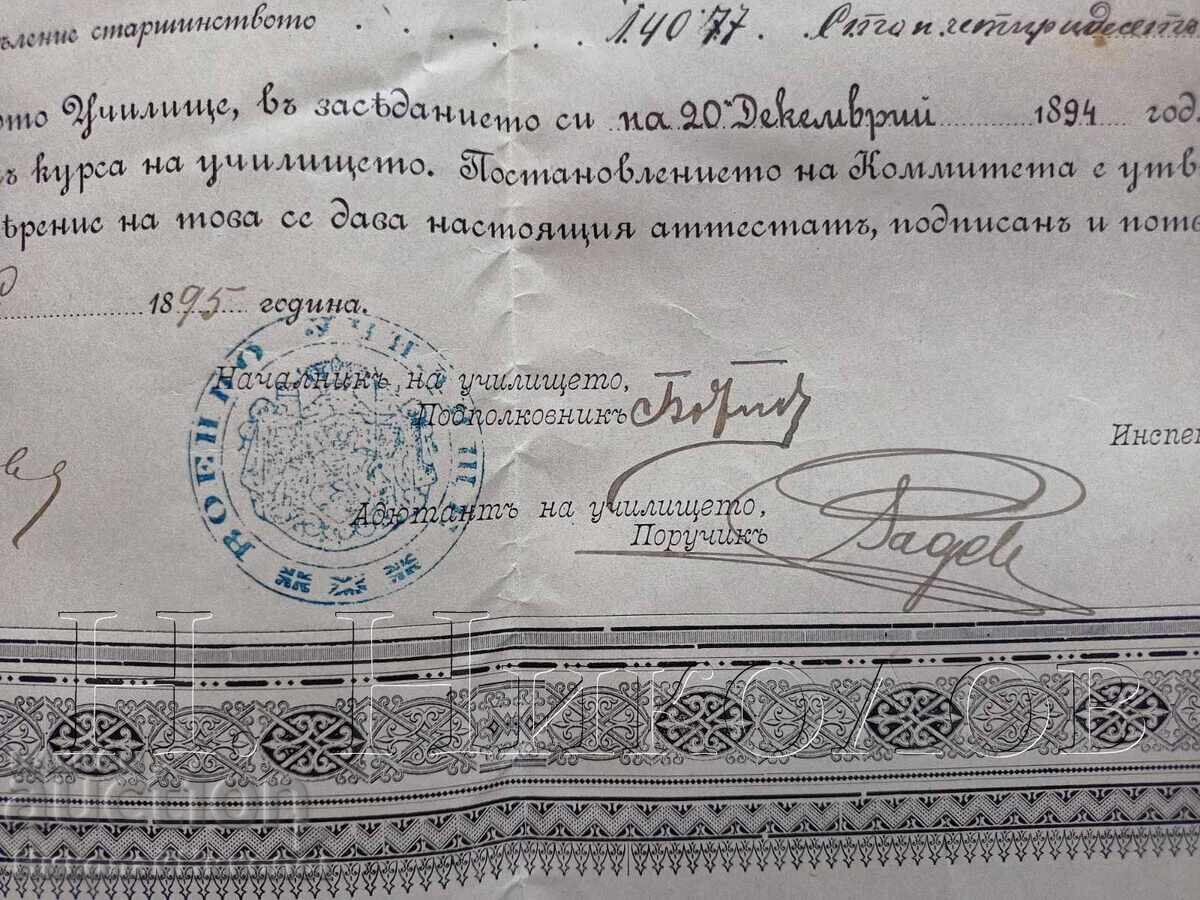 ъление старшинството . . . . . . 14077. Сто и четиридесеть
ото Училище, въ засѣданието си на 20 Декемврий 1894 год.
ъ курса на училището. Постановлението на Коммитета е утв
ѣрение на това се дава настоящия аттестатъ, подписанъ и потв
1895 година.
Началникъ на училището,
Подполковникъ
Инспе
Адютантъ на училището,
Поручикъ Радев
ВОЕННО УЧИЛИЩЕ
Н. Николов
auction